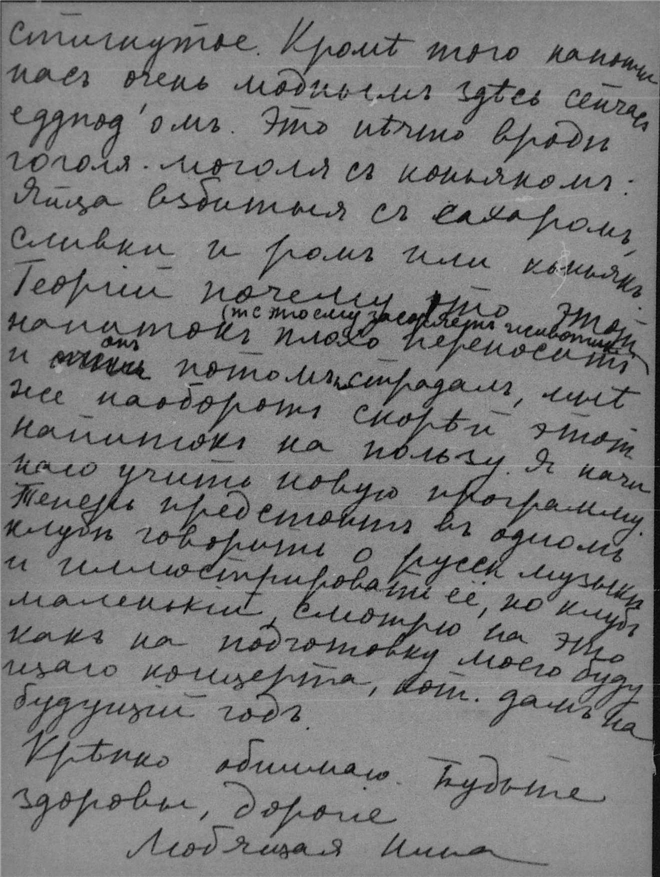 стигнутое. Кромѣ того напоили
насъ очень моднымъ здѣсь сейчасъ
еддпод'омъ. Это нѣчто вродѣ
гоголя-моголя съ коньякомъ:
Яйца взбитыя съ сахаромъ,
сливки и ромъ или коньякъ.
Георгій почему то этотъ
напитокъ плохо переноситъ
(т.е. по ему засоряетъ животикъ)
и онъ потомъ страдалъ, мнѣ
же наоборотъ скорѣй этотъ
напитокъ на пользу. Я начи
наю учить новую программу.
Теперь предстоитъ въ одномъ
клубѣ говорить о русск музыкѣ
и иллюстрировать её, но клубъ
маленькій, смотрю на это
какъ на подготовку моего буду
щаго концерта, кот. дамъ на
будущій годъ.
Крѣпко обнимаю. Будьте
здоровы, дорогіе
Любящая Нина